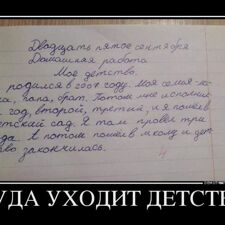 Двадцать пятое сентября
Домашняя работа
Мое детство.
родился в 2001 году. Моя семья-
а, папа, брат. Потом мне исполни
год, второй, третий, и я пошёл в
етский сад. Я там провёл три
да. А потом пошёл в школу и дет
во закончилась.
УДА УХОДИТ ДЕТСТВ